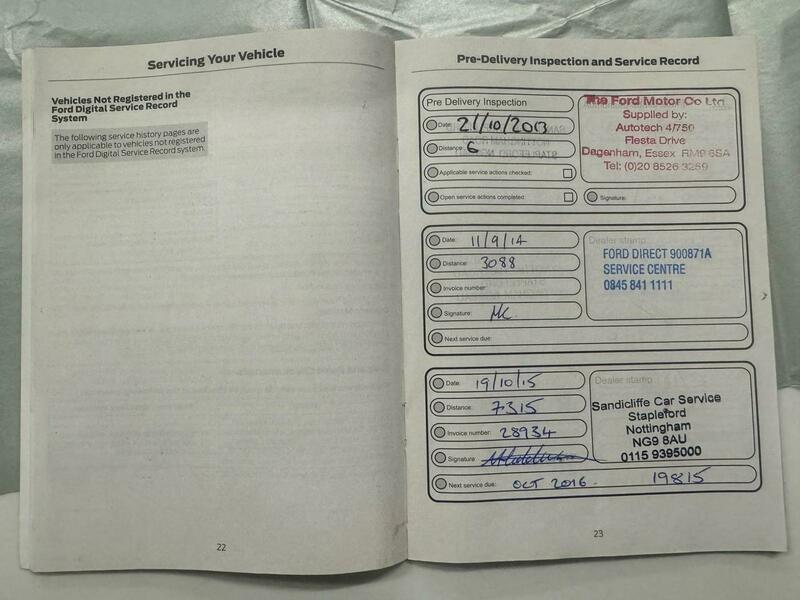 Servicing Your Vehicle
Vehicles Not Registered in the
Ford Digital Service Record
System
The following service history pages are
only applicable to vehicles not registered
in the Ford Digital Service Record system.
22
Pre-Delivery Inspection and Service Record
Pre Delivery Inspection
Date: 21/10/2013
Distance: 6
Applicable service actions checked:
Open service actions completed:
The Ford Motor Co Ltd
Supplied by:
Autotech 4/750
Fiesta Drive
Dagenham, Essex RM9 6SA
Tel: (0)20 8526 3259
Signature:
Date: 11/9/14
Distance: 3088
Invoice number:
Signature: MC
Next service due:
Dealer stamp
FORD DIRECT 900871A
SERVICE CENTRE
0845 841 1111
Date: 19/10/15
Distance: 7315
Invoice number: 28934
Signature:
Next service due: OCT 2016. 19815
Dealer stamp
Sandicliffe Car Service
Stapleford
Nottingham
NG9 8AU
0115 9395000
23